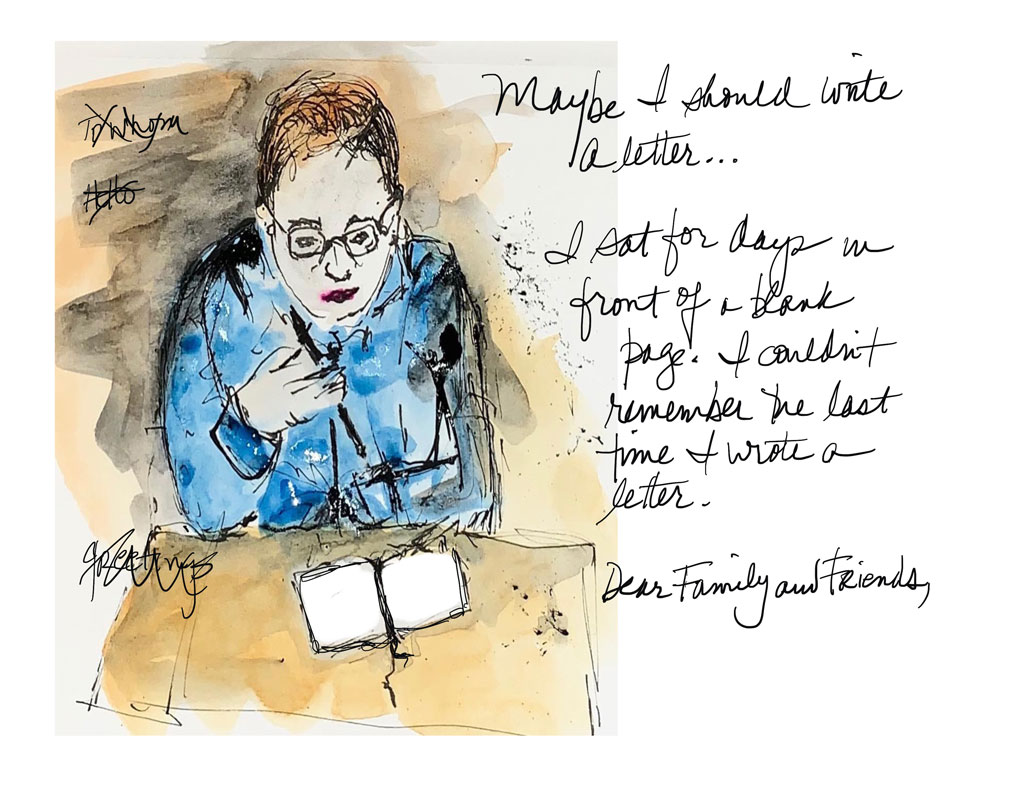 To Whom
Hello
Greetings
Maybe I should write
a letter...
I sat for days in
front of a blank
page. I couldn't
remember the last
time I wrote a
letter.
Dear Family and Friends,